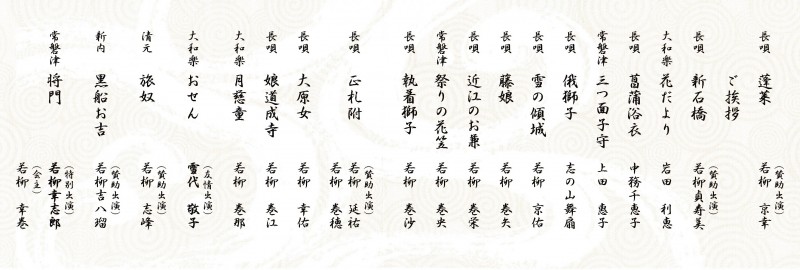 長唄 蓬莱 若柳 京幸
ご挨拶
長唄 新石橋 (賛助出演) 若柳貞寿美
大和楽 花だより 岩田 利恵
長唄 菖蒲浴衣 中務千恵子
常磐津 三つ面子守 上田 惠子
長唄 俄獅子 志の山舞扇
長唄 雪の傾城 若柳 京佑
長唄 藤娘 若柳 巻矢
長唄 近江のお兼 若柳 巻栄
常磐津 祭りの花笠 若柳 巻央
長唄 執着獅子 若柳 巻沙
長唄 正札附 (賛助出演) 若柳 延祐 若柳 巻穂
長唄 大原女 若柳 幸佑
長唄 娘道成寺 若柳 巻江
大和楽 月慈童 若柳 巻那
大和楽 おせん (友情出演) 雪代 敬子
清元 旅奴 (賛助出演) 若柳 志峰
新内 黒船お吉 (賛助出演) 若柳吉八瑠
常磐津 将門 (特別出演) 若柳幸志郎 (会主) 若柳 幸巻